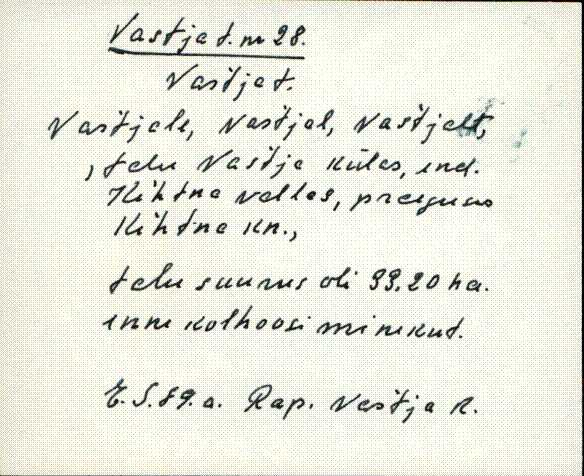 Vastja t. nr 28.
Vastja t.
Vastjale, Vastjal, Vastjalt,
, talu Vastja külas, end.
Kehtna vallas, praegune
Kehtna kn.,
talu suurus oli 33.20 ha.
enne kolhoosi minekut.
E.S. 89.a. Rap. Vastja k.